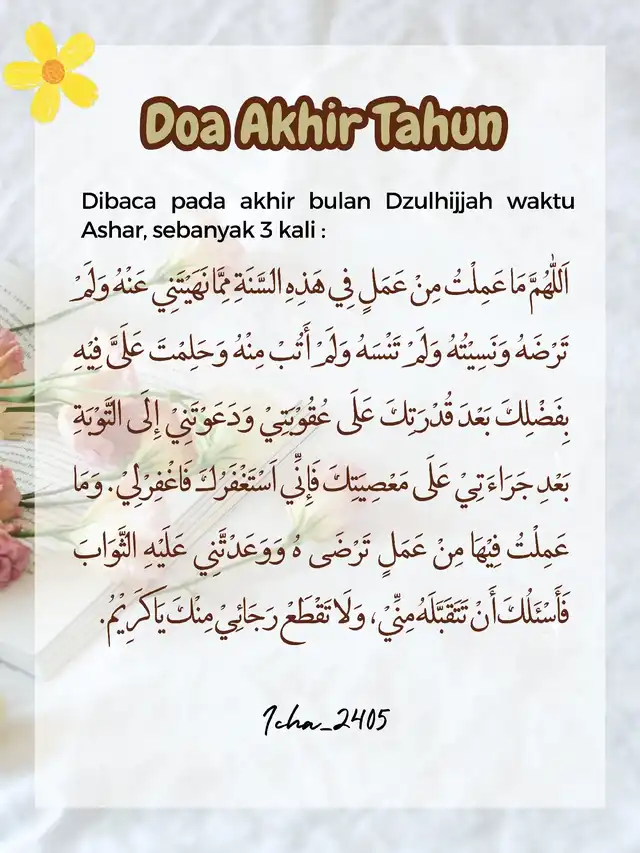 Doa Akhir Tahun
Dibaca pada akhir bulan Dzulhijjah waktu
Ashar, sebanyak 3 kali :
اَللّٰهُمَّ مَا عَمِلْتُ مِنْ عَمَلٍ فِي هَذِهِ السَّنَةِ مِمَّا نَهَيْتَنِي عَنْهُ وَلَمْ
تَرْضَهُ وَنَسِيْتُهُ وَلَمْ تَنْسَهُ وَلَمْ أَتُبْ مِنْهُ وَحَلِمْتَ عَلَيَّ فِيْهِ
بِفَضْلِكَ بَعْدَ قُدْرَتِكَ عَلَى عُقُوْبَتِيْ وَدَعَوْتَنِيْ إِلَى التَّوْبَةِ
بَعْدِ جَرَاءَتِيْ عَلَى مَعْصِيَتِكَ فَإِنِّي اَسْتَغْفِرُكَ فَاغْفِرْلِيْ. وَمَا
عَمِلْتُ فِيْهَا مِنْ عَمَلٍ تَرْضَى هُ وَوَعَدْتَّنِي عَلَيْهِ الثَّوَابَ
فَأَسْئَلُكَ أَنْ تَتَقَبَّلَهُ مِنِّيْ، وَلَا تَقْطَعْ رَجَائِيْ مِنْكَ يَاكَرِيْمُ.
Icha_2405